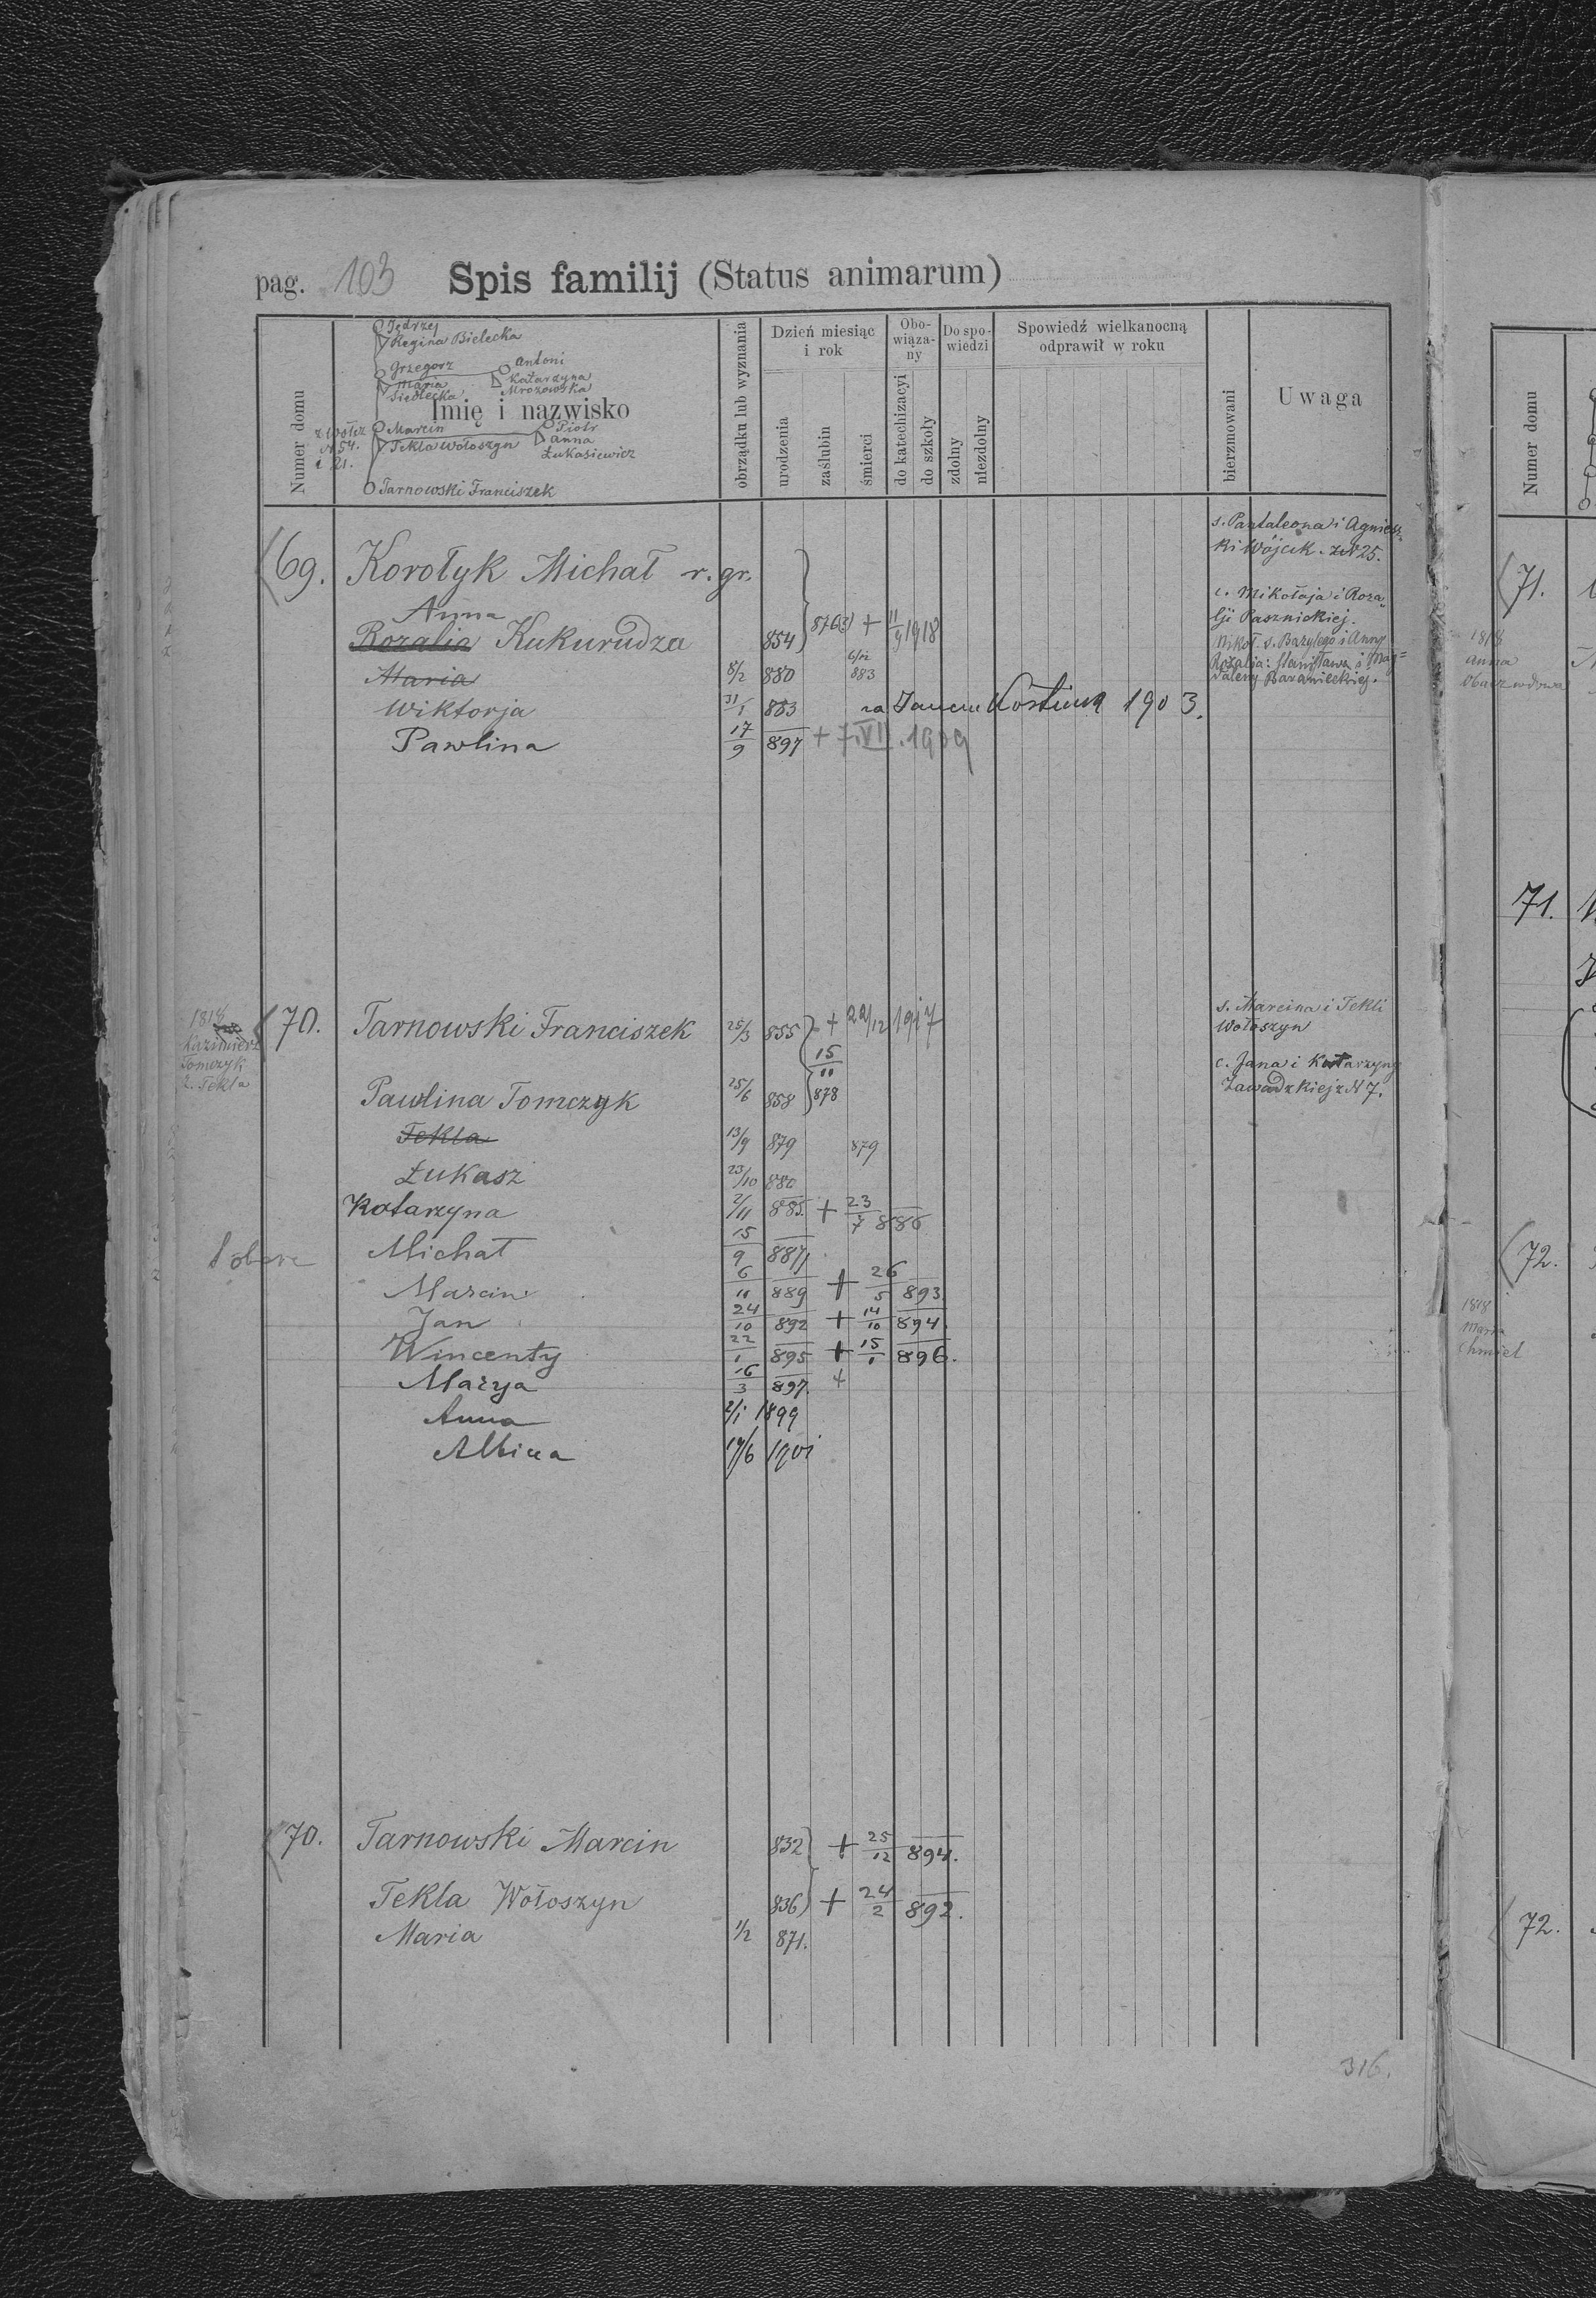 pag. 103 Spis familij (Status animarum)
Numer domu
Imię i nazwisko
obrządku lub wyznania
Dzień miesiąc i rok
urodzenia
zaślubin
śmierci
Obowiąza-ny
do katechizacyi
do szkoły
Do spo-wiedzi
zdolny
niezdolny
Spowiedź wielkanocną odprawił w roku
bierzmowani
Uwaga
Jędrzej
Regina Bielecka
Grzegorz
Antoni
Maria
Katarzyna
Siedlecka
Mrozowska
Marcin
Piotr
Tekla Wołoszyn
Anna
Łukasiewicz
N 54.
i 21.
Tarnowski Franciszek
s. Pantaleona i Agniesz-
ki Wójcik. z N 25.
69. Korołyk Michał r. gr.
c. Mikołaja i Roza-
lji Pasznickiej.
Anna
Rozalia Kukurudza 854 876 + 11/9 1918
Mikoł. s. Bazylego i Anny
Rozalia: Stanisława i Mag=
daleny Baranieckiej.
Maria 8/2 880 883
Wiktorja 31/1 883 za Janem Kostiuk 1903.
Pawlina 17/9 897 + 7.VII.1909
1818
Kazimierz
Tomczyk
ż. Tekla
70. Tarnowski Franciszek 25/3 855 + 22/12 1917
s. Marcina i Tekli
Wołoszyn
15/11 878
c. Jana i Katarzyny
Zawadzkiej z N 7.
Pawlina Tomczyk 25/6 858
Tekla 13/9 879 879
Łukasz 23/10 880
Katarzyna 2/11 885. + 23/7 886
Michał 15/9 887
Marcin 6/11 889 + 26/5 893
Jan 24/10 892 + 14/10 894.
Wincenty 22/1 895 + 15/1 896.
Marya 16/3 897. +
Anna 2/1 1899
Albina 19/6 1901
70. Tarnowski Marcin 832 + 25/12 894.
Tekla Wołoszyn 836 + 24/2 892.
Maria 1/2 871.
316.
Numer domu
71.
1818
Anna
71.
72.
1818
Maria
Chmiel
72.